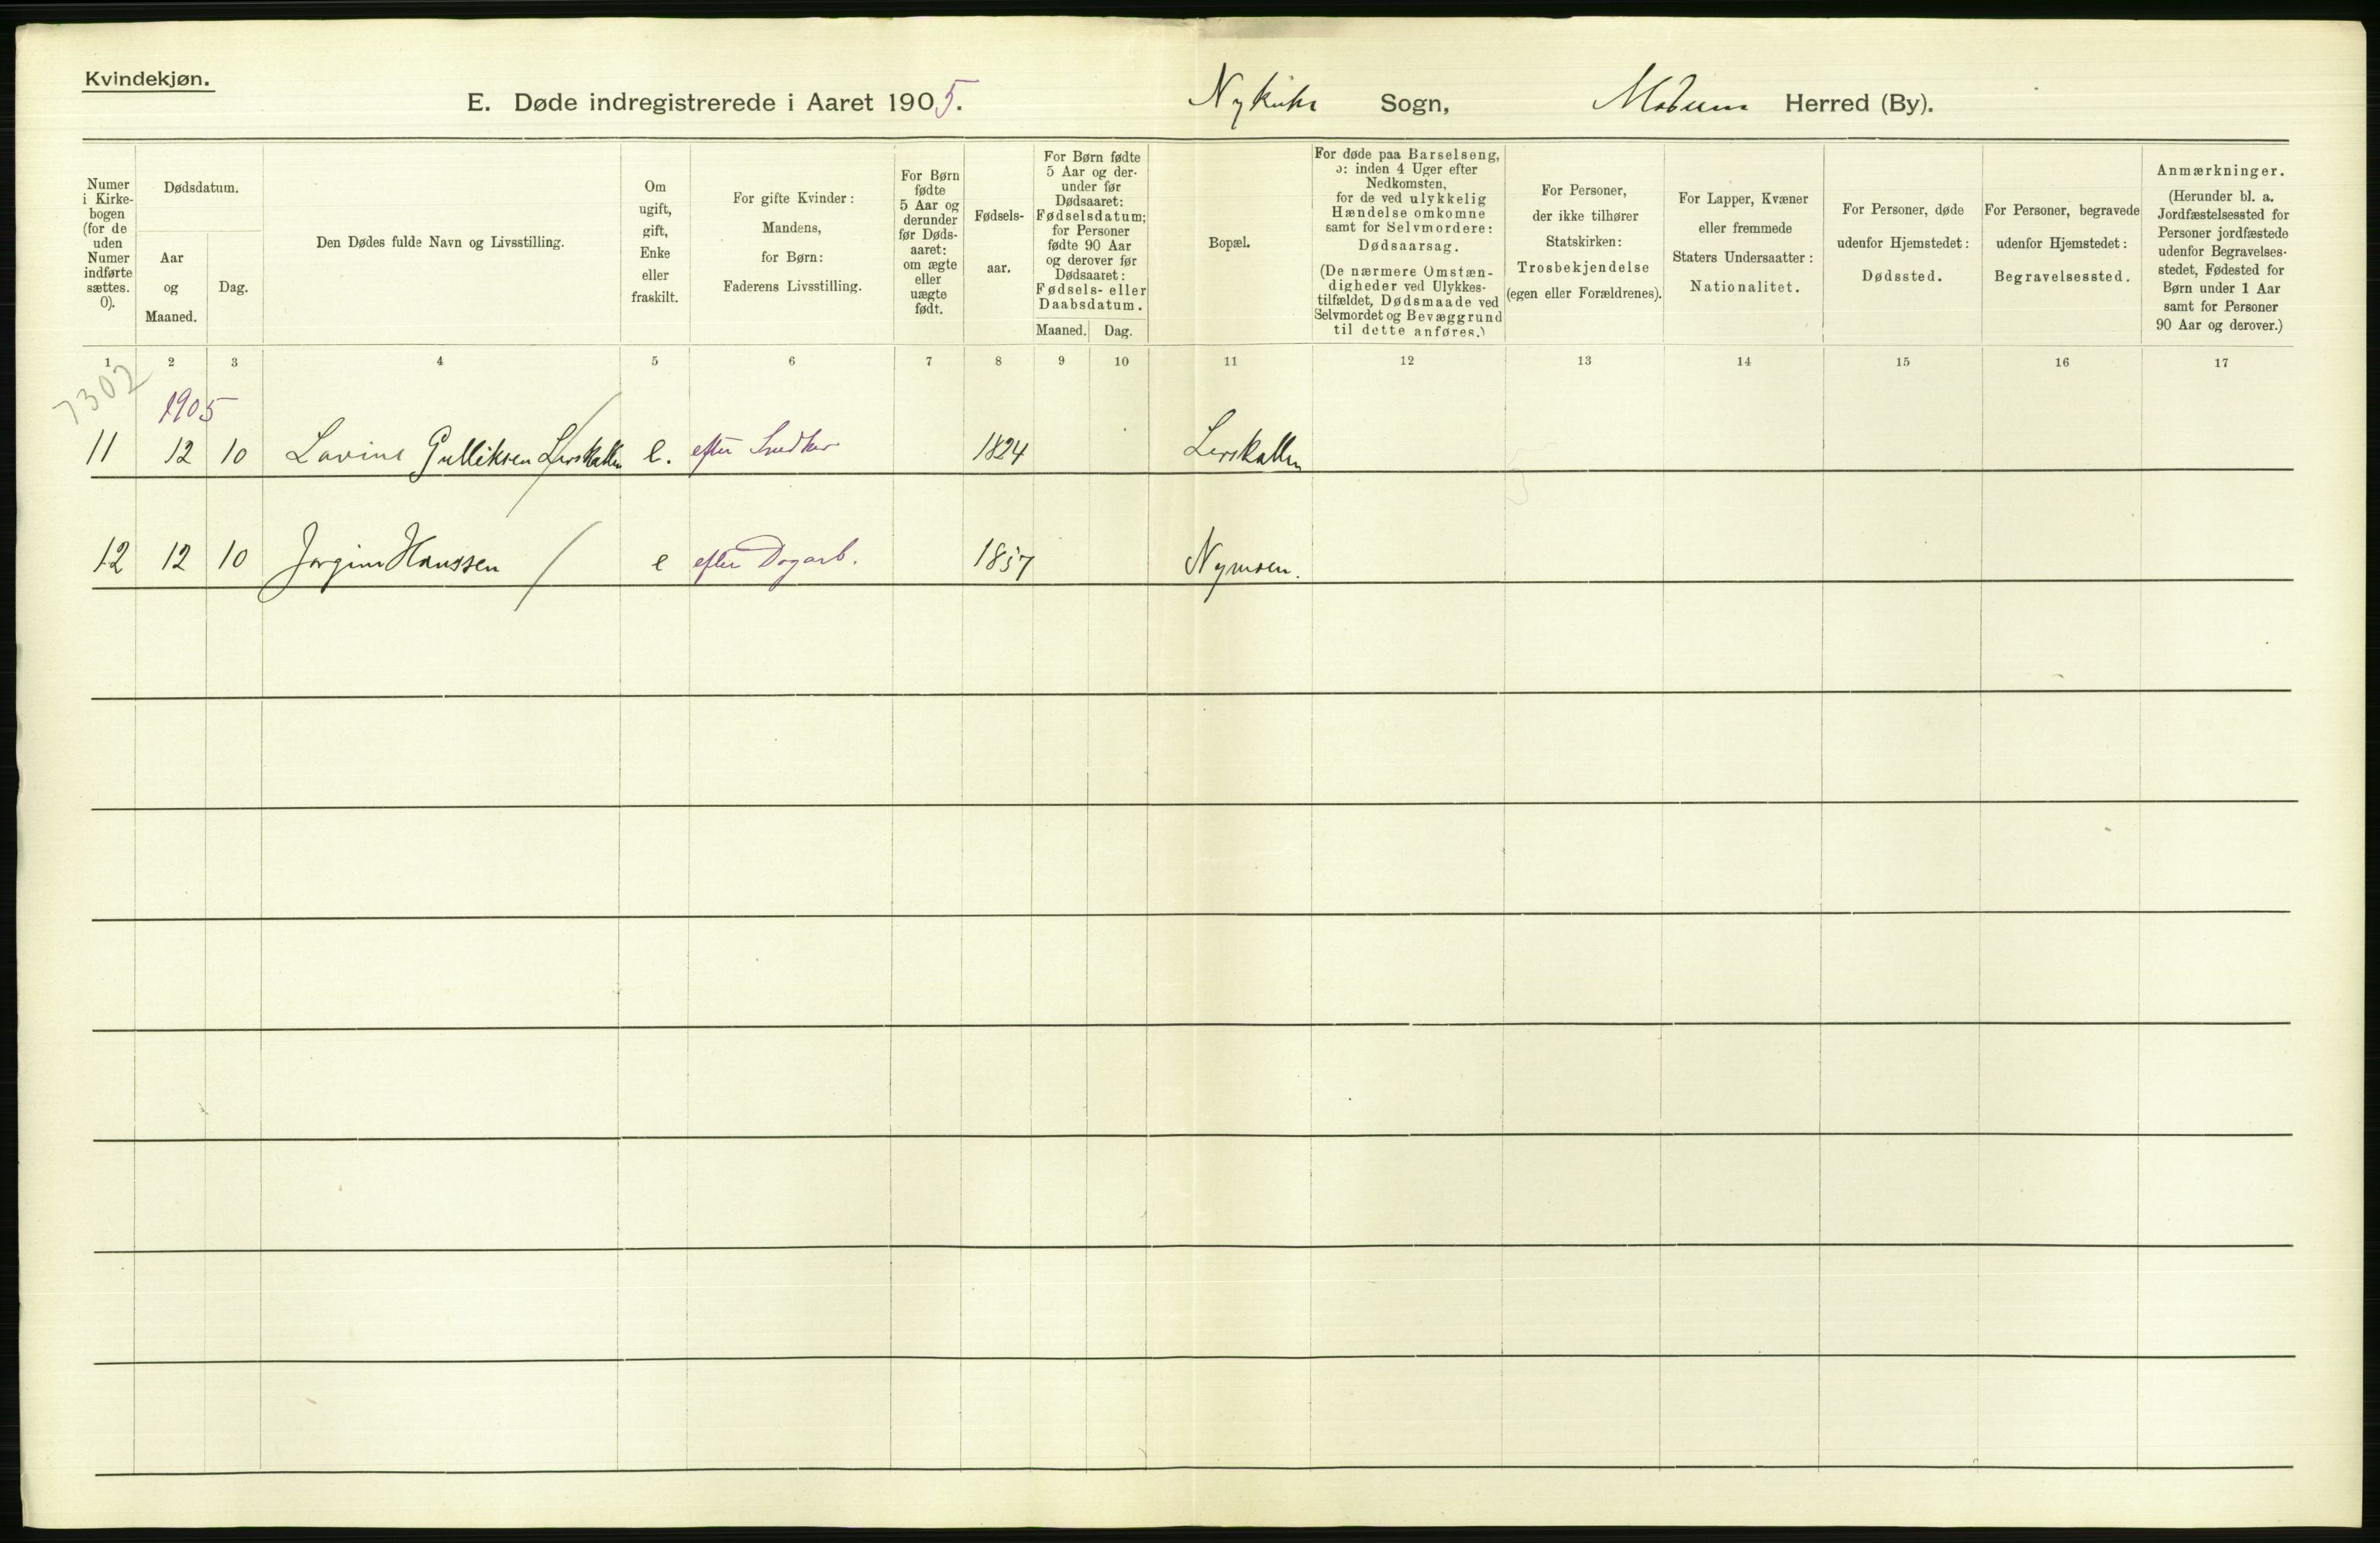 Kvindekjøn.
E. Døde indregistrerede i Aaret 1905. Nykirke Sogn, Modum Herred (By).
Numer i Kirke- bogen (for de uden Numer indførte sættes. 0).
Dødsdatum.
Aar og Maaned.
Dag.
Den Dødes fulde Navn og Livsstilling.
Om ugift, gift, Enke eller fraskilt.
For gifte Kvinder: Mandens, for Børn: Faderens Livsstilling.
For Børn fødte 5 Aar og derunder før Døds- aaret: om ægte eller uægte født.
Fødsels- aar.
For Børn fødte 5 Aar og der- under før Dødsaaret: Fødselsdatum; for Personer fødte 90 Aar og derover før Dødsaaret: Fødsels- eller Daabsdatum.
Maaned. Dag.
Bopæl.
For døde paa Barselseng, ɔ: inden 4 Uger efter Nedkomsten, for de ved ulykkelig Hændelse omkomne samt for Selvmordere: Dødsaarsag. (De nærmere Omstæn- digheder ved Ulykkes- tilfældet, Dødsmaade ved Selvmordet og Bevæggrund til dette anføres.)
For Personer, der ikke tilhører Statskirken: Trosbekjendelse (egen eller Forældrenes).
For Lapper, Kvæner eller fremmede Staters Undersaatter: Nationalitet.
For Personer, døde udenfor Hjemstedet: Dødssted.
For Personer, begravede udenfor Hjemstedet: Begravelsessted.
Anmærkninger. (Herunder bl. a. Jordfæstelsessted for Personer jordfæstede udenfor Begravelses- stedet, Fødested for Børn under 1 Aar samt for Personer 90 Aar og derover.)
1 2 3 4 5 6 7 8 9 10 11 12 13 14 15 16 17
7302
1905
11 12 10 Lovine Gulliksen Lerskallen e. efter Snedker 1824 Lerskallen
12 12 10 Jørgine Hanssen e efter Dagarb. 1837 Nymoen.